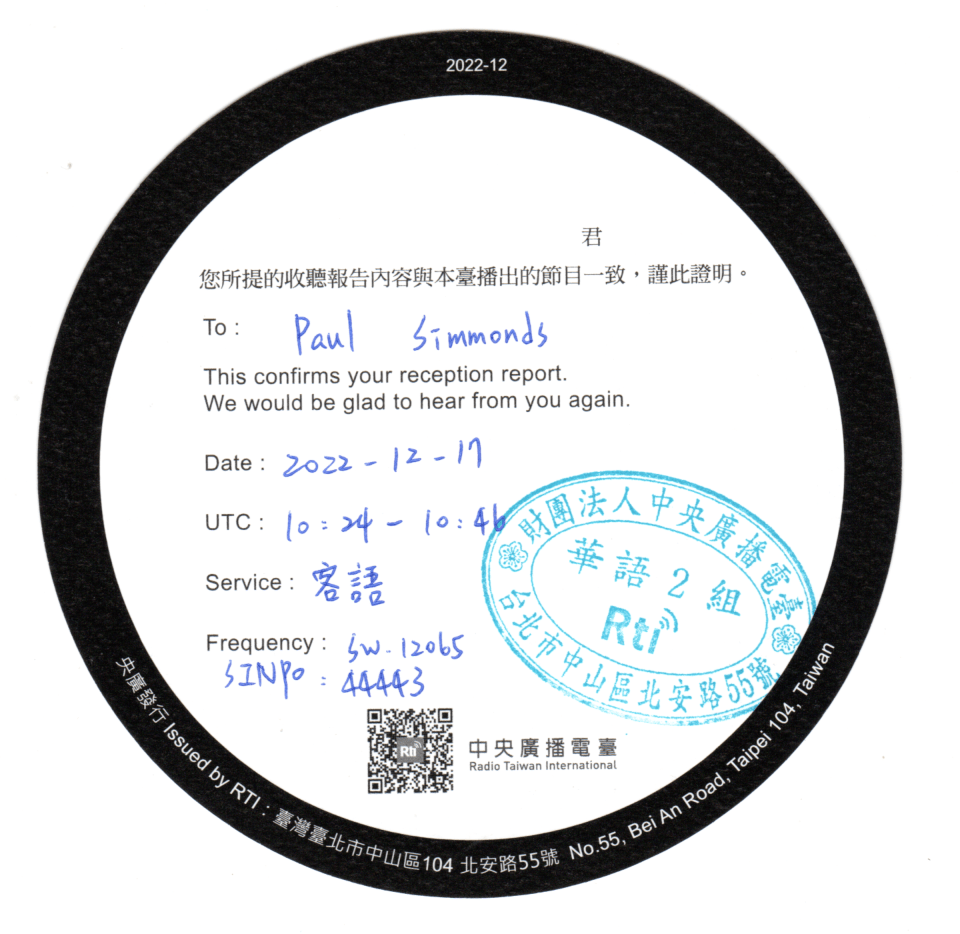 2022-12
君
您所提的收聽報告內容與本臺播出的節目一致，謹此證明。
To : Paul Simmonds
This confirms your reception report.
We would be glad to hear from you again.
Date : 2022-12-17
UTC : 10:24 - 10:46
Service : 客語
Frequency : SW-12065
SINPO : 44443
財團法人中央廣播電臺
華語2組
Rti
台北市中山區北安路55號
Rti
中央廣播電臺
Radio Taiwan International
央廣發行 Issued by RTI : 臺灣臺北市中山區104 北安路55號 No.55, Bei An Road, Taipei 104, Taiwan